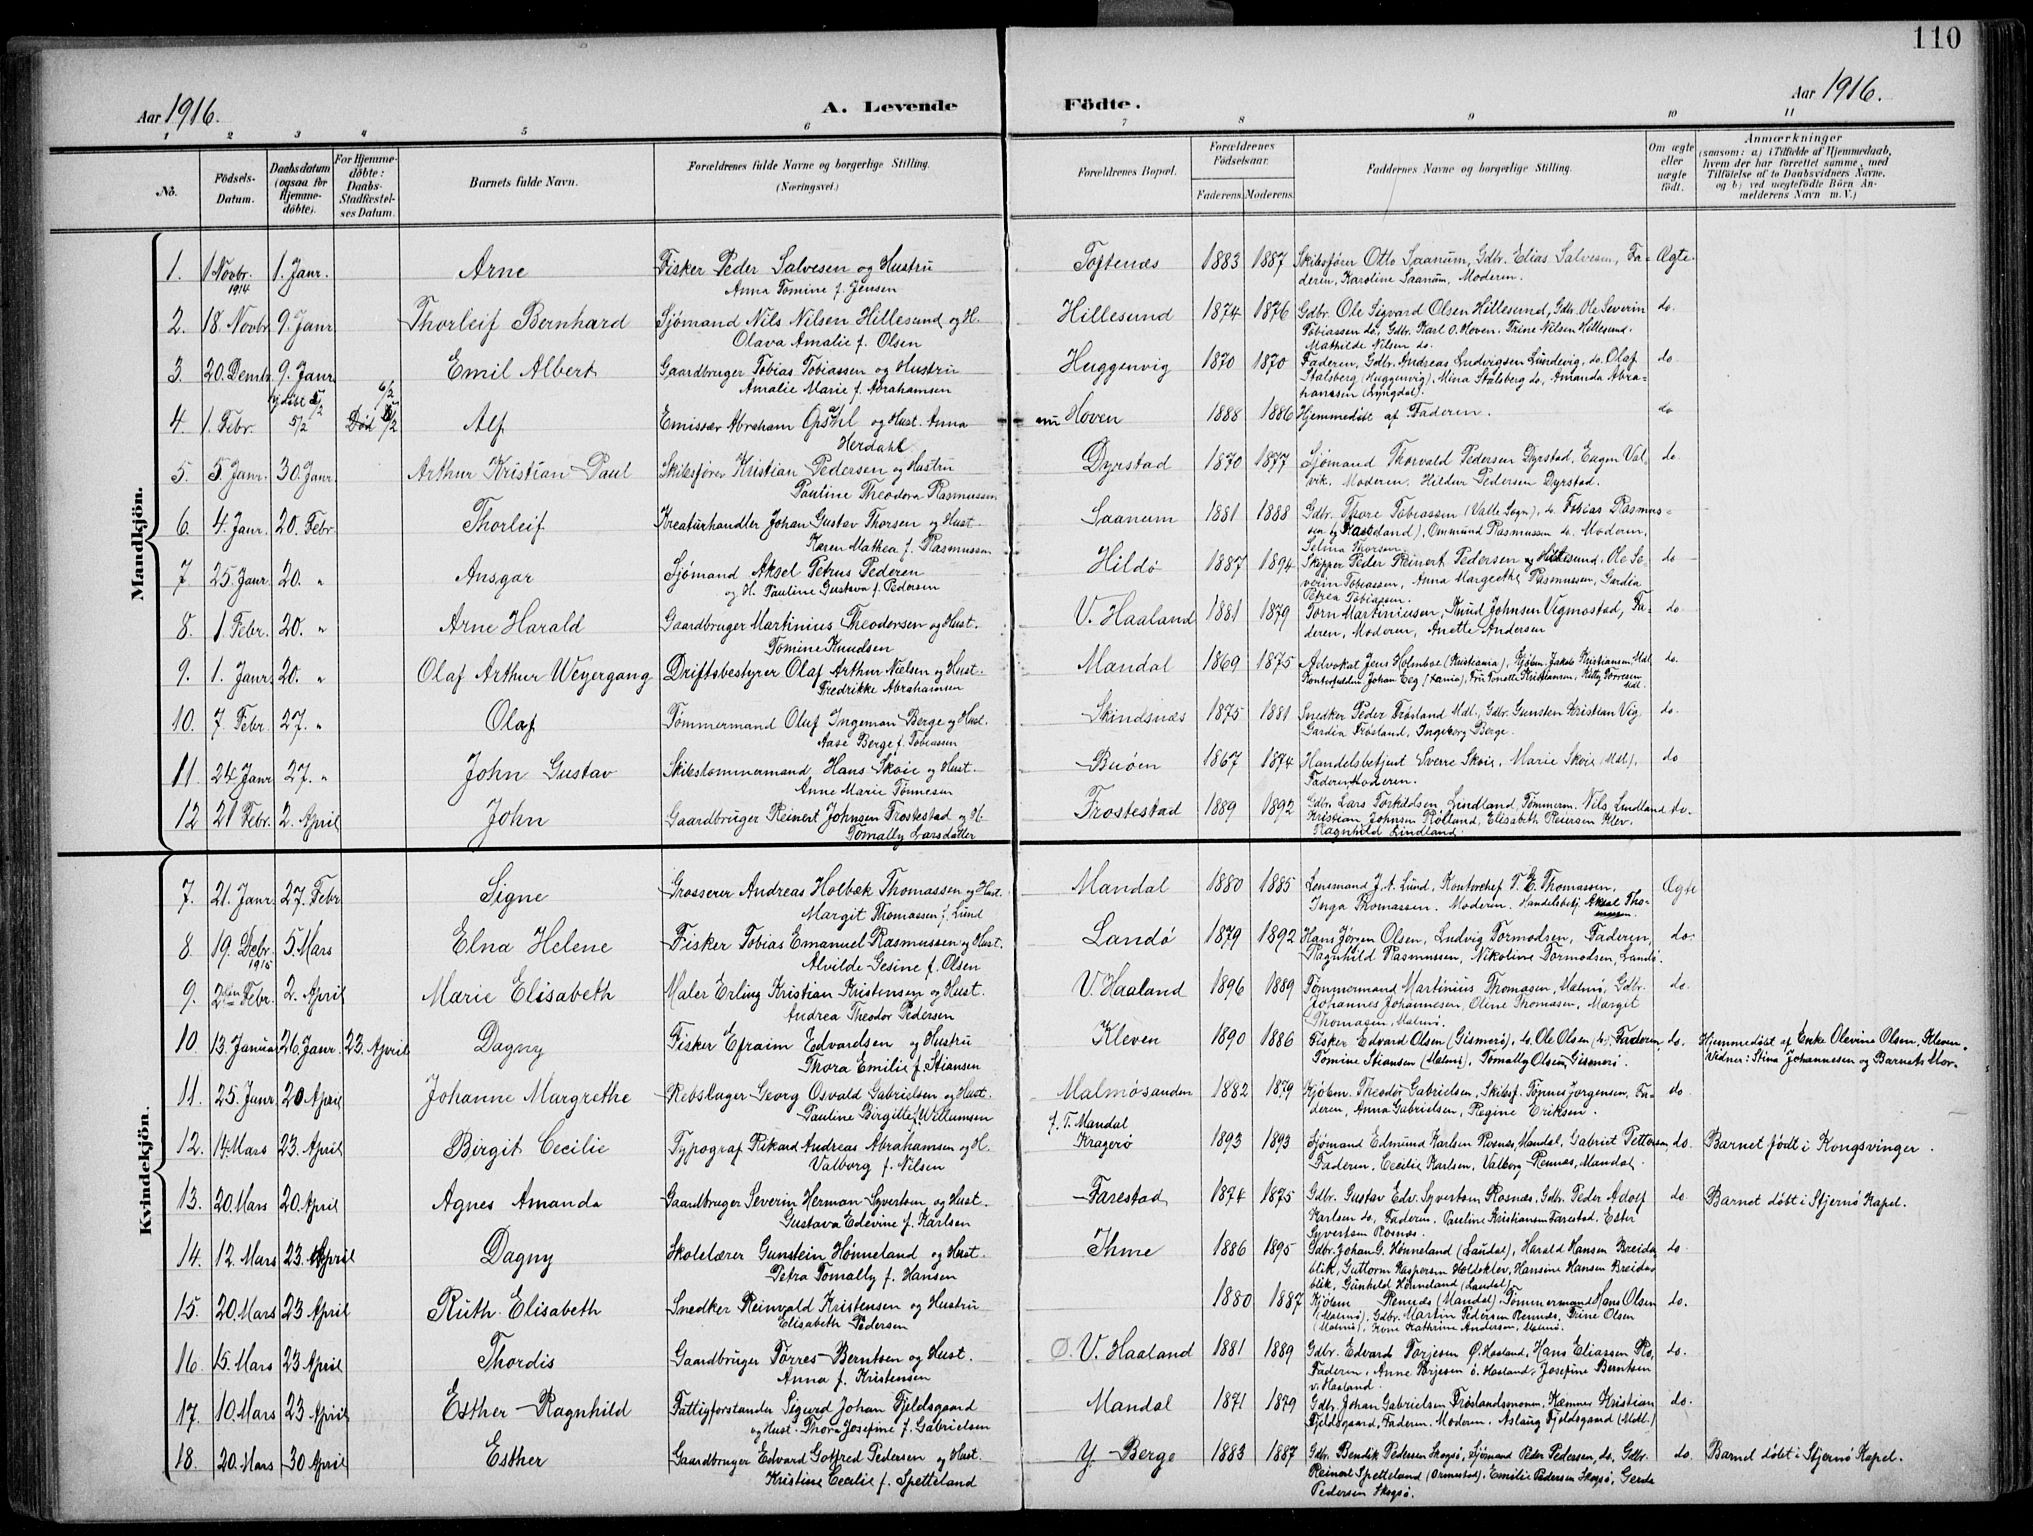 110
Aar 1916.
A. Levende Födte.
Aar 1916.
1 2 3 4 5 6 7 8 9 10 11
No.
Födsels-Datum.
Daabsdatum (ogsaa for Hjemmedöbte).
For Hjemmedöbte: Daabs-Stadfæstelses Datum.
Barnets fulde Navn.
Forældrenes fulde Navne og borgerlige Stilling.
(Næringsvei.)
Forældrenes Bopæl.
Forældrenes Födselsaar.
Faderens. Moderens.
Faddernes Navne og borgerlige Stilling.
Om ægte eller uægte födt.
Anmærkninger
(saasom: a) i Tilfælde af Hjemmedaab,
hvem der har forrettet samme, med
Tilföielse af to Daabsvidners Navne,
og b) ved uægtefödte Börn Anmelderens Navn m. V.)
Mandkjön.
1. 1 Novbr. 1914 1. Janr. Arne Fisker Peder Salvesen og Hustru Toftenæs 1883 1887 Skibsfører Otto Saanum, Gdbr. Elias Salvesen, Fa- Ægte.
Anna Tomine f. Jensen deren, Karoline Saanum, Moderen.
2. 18. Novbr. 9. Janr. Thorleif Bernhard Sjömand Nils Nilsen Hillesund og H. Hillesund 1874 1876 Gdbr. Ole Sigvard Olsen Hillesund, Gdb. Ole Severin do.
Olava Amalie f. Olsen Tobiassen do, Gdbr. Karl O. Hoven. Trine Nilsen Hillesund.
Mathilde Nilsen do.
3. 20. Dembr. 9. Janr. Emil Albert Gaardbruger Tobias Tobiassen og Hustru Huggenvig 1870 1870 Faderen, Gdbr. Andreas Ludvigsen Lundevig, do. Olaf do
Amalie Marie f. Abrahamsen Stalsberg (Huggenvig), Mina Stalsberg do, Amanda Abra-
hamsen (Lyngdal).
4. 1. Febr. 5/2 Død 6/2 Alf Emissær Abraham Opsahl og Hust. Anna nu Hoven 1888 1886 Hjemmedöbt af Faderen. do
Herdahl
5. 5. Janr. 30. Janr. Arthur Kristian Paul Skibsfører Kristian Pedersen og Hustru Dyrstad 1870 1877 Sjömand Thorvald Pedersen Dyrstad, Eugen Val- do.
Pauline Theodora Rasmussen vik, Moderen, Hildur Pedersen Dyrstad.
6. 4. Janr. 20. Febr. Thorleif Kreaturhandler Johan Gustav Thorsen og Hust. Saanum 1881 1888 Gdbr. Thore Tobiassen (Valle Sogn), do. Tobias Rasmus-
Karen Mathea f. Rasmussen Ommund Rasmussen do. Moderen,
Selina Thorsen.
7 25. Janr. 20. " Ansgar Sjömand Aksel Petrus Pedersen Hildö 1887 1894 Skipper Peder Reinert Pedersen Hillesund, Ole Se- do
og H. Pauline Gustava f. Pedersen verin Tobiassen, Anna Margrethe Rasmussen, Gardia
Petrea Tobiassen.
8. 1. Febr. 20. " Arne Harald Gaardbruger Martinius Theodorsen og Hust. V. Haaland 1881 1879 Torn Martiniusen, Knud Johnsen Vigmostad, Fa- do.
Tomine Knudsen deren, Moderen, Anette Andersen
9. 1. Janr. 20. " Olaf Arthur Weyergang Driftsbestyrer Olaf Arthur Nielsen og Hust. Mandal 1869 1875 Advokat Jens Holmboe (Kristiania), Kjöbm. Jakob Kristiansen Mdl. do.
Fredrikke Abrahamsen Johan Eeg Fru Tonette Kristiansen, Kitty Torresen
Mdl.
10. 7 Febr. 27. " Olaf Tømmermand Oluf Ingeman Berge og Hust. Skindsnæs 1875 1881 Snedker Peder Frösland Mdl., Gdbr. Gunsten Kristian Vig, do.
Aase Berge f. Tobiassen Gardia Frösland, Ingeborg Berge.
11. 24 Janr 27. " John Gustav Skibstømmermand Hans Skøie og Hust. Buöen 1867 1874 Handelsbetjent Sverre Skøie, Marie Skøie (Mdl), do
Anne Marie Tönnesen Faderen Moderen.
12 21 Febr. 2. April John Gaardbruger Reinert Johnsen Frostestad og H. Frostestad 1889 1892 Gdbr. Lars Torkildsen Lindland, Tömmerm. Nils Lindland do.
Tomally Larsdatter Kristian Johnsen Rölland, Elisabeth Reiersen Klev,
Ragnhild Lindland.
Kvindekjön.
7. 21. Janr. 27. Febr Signe Grosserer Andreas Holbæk Thomassen og Hust. Mandal 1880 1885 Lensmand J. A. Lund, Kontorchef T. E. Thomassen, Ægte
Margit Thomassen f. Lund Inga Thomassen. Moderen. Handelsbetj. Aksel Tho-
massen.
8 19. Decbr. 1915 5. Mars Elna Helene Fisker Tobias Emanuel Rasmussen og Hust. Landö 1879 1892 Hans Jörgen Olsen, Ludvig Tormodsen, Faderen, do.
Alvilde Gesine f. Olsen Ragnhild Rasmussen, Nikoline Tormodsen, Landö.
9. 2den Febr. 2. April Marie Elisabeth Maler Erling Kristian Kristensen og Hust. V. Haaland 1896 1889 Tømmermand Martinius Thomasen, Malmö, Gdbr. do.
Andrea Theodor Pedersen Johannes Johannesen, Oline Thomasen, Margit
Thomasen, Malmö.
10. 13. Januar 26. Janr. 23. April Dagny Fisker Efraim Edvardsen og Hustru Kleven 1890 1886 Fisker Edvard Olsen (Gismerö), do. Ole Olsen (do.), Faderen, do. Hjemmedöbt af Enke Olevine Olsen, Kleven.
Thora Emilie f. Stiansen Tomine Stiansen (Malmö), Tomally Olsen, Gismerö. Vidner: Stina Johannesen og Barnets Mor.
11. 25. Janr. 20 April Johanne Margrethe Rebslager Georg Osvald Gabrielsen og Hust. Malmösanden 1882 1879 Kjöbm. Theodor Gabrielsen, Skibsf. Tönnes Jörgensen, Fa- do
Pauline Birgitte f. Willumsen deren, Anna Gabrielsen, Regine Eriksen.
12. 14 Mars 23. April Birgit Cecilie Typograf Rikard Andreas Abrahamsen og H. f. T. Mandal Kragerö 1893 1893 Sjömand Edmund Karlsen Rosnæs, Mandal, Gabriel Pettersen, do. Barnet födt i Kongsvinger.
Valborg f. Nilsen Faderen, Cecilie Karlsen, Valborg Rennæs, Mandal.
13. 20. Mars 20. April Agnes Amanda Gaardbruger Severin Herman Syvertsen og Hust. Farestad 1874 1875 Gdbr. Gustav Edv. Syvertsen Rosnæs, Gdbr. Peder Adolf do. Barnet döbt i Stjernö Kapel.
Gustava Edevine f. Karlsen Karlsen do, Faderen, Pauline Kristiansen Farestad, Ester
Syvertsen Rosnæs.
14. 12. Mars 23. April Dagny Skolelærer Gunstein Hønneland og Hust. Ihme 1886 1895 Gdbr. Johan G. Hønneland (Laudal), Harald Hansen Breida- do.
Petra Tomally f. Hansen blik, Guttorm Kaspersen Holdeklev, Hansine Hansen Breida-
blik, Gunhild Hønneland (Laudal)
15. 20. Mars 23 April Ruth Elisabeth Snedker Reinvald Kristensen og Hustru 1880 1887 Kjöbm Rennæs (Mandal). Tømmermand Hans Olsen do.
Elisabeth Pedersen (Malmö), Gdbr. Martin Pedersen Rennæs, Trine Olsen
(Malmö), Kone Kathrine Andersen, Malmö.
16. 15. Mars 23 April Thordis Gaardbruger Torres Berntsen og Hust. V. Haaland 1881 1889 Gdbr. Edvard Torjesen Ö. Haaland, Hans Eliassen Ro, do.
Anna f. Kristensen Faderen, Anne Torjesen ö. Haaland, Josefine Berntsen
v. Haaland.
17. 10. Mars 23 April Esther Ragnhild Fattigforstander Sigurd Johan Fjeldsgaard Mandal 1871 1879 Gdbr. Johan Gabrielsen Fröslandsmonen, Kæmner Kristian do.
og Hust. Thora Josefine f. Gabrielsen Fjeldsgaard, Faderen, Moderen, Aslaug Fjeldsgaard (Mdl.)
18. 20. Mars 30 April Esther Gaardbruger Edvard Gotfred Pedersen og Hust. Y. Berge 1883 1887 Gdbr. Bendik Pedersen Skogsö, Sjömand Peder Pedersen, do, Gdbr. do. Barnet döbt i Stjernö Kapel.
Kristine Cecilie f. Spetteland Reinert Spetteland (Ormestad), Emilie Pedersen Skogsö, Gerda
Pedersen Skogsö.